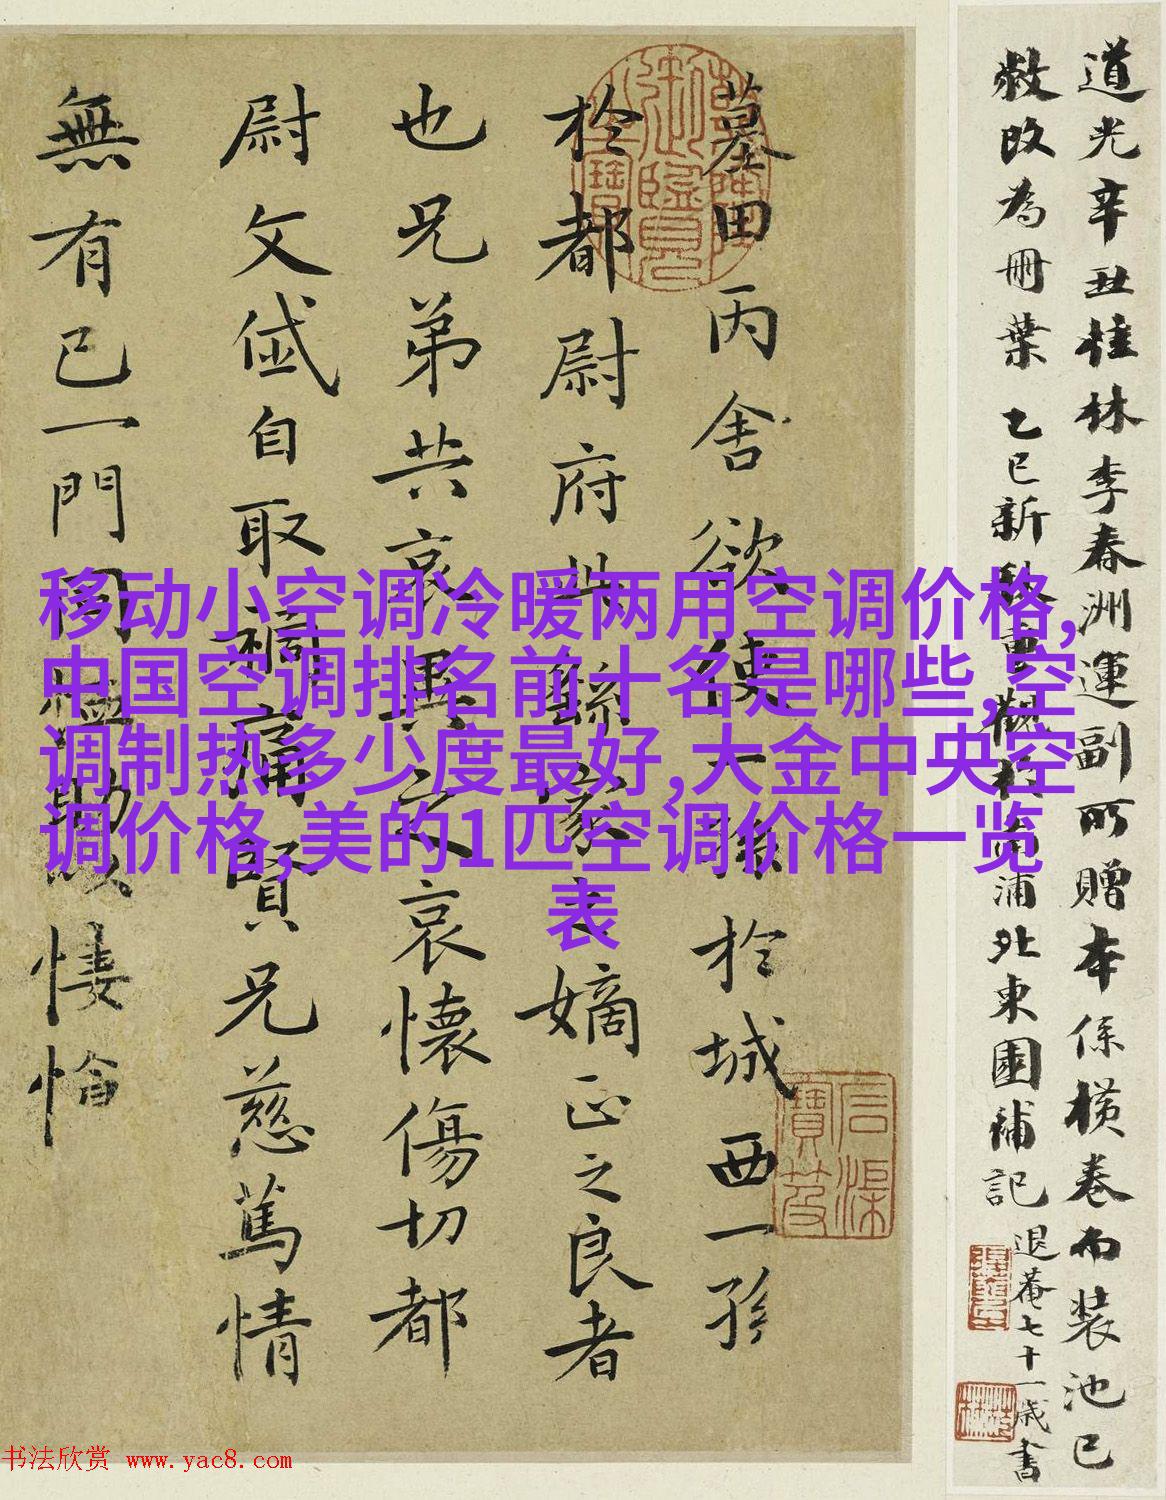 道光辛丑桂林李春洲運副所贈本係橫卷而裝池已
敝改為冊葉 乙巳新秋重觀於南浦北東園補記 退菴七十一歲書
墓田丙舍欲使一孫於城西一孫
於都尉府此繇家之嫡正之良者
也兄弟共哀異之哀懷傷切都
尉文岱自取禍痛賢兄慈篤情
無有已一門同恤助以悽愴
移动小空调冷暖两用空调价格,
中国空调排名前十名是哪些,空
调制热多少度最好,大金中央空
调价格,美的1匹空调价格一览
表
书法欣赏 www.yac8.com